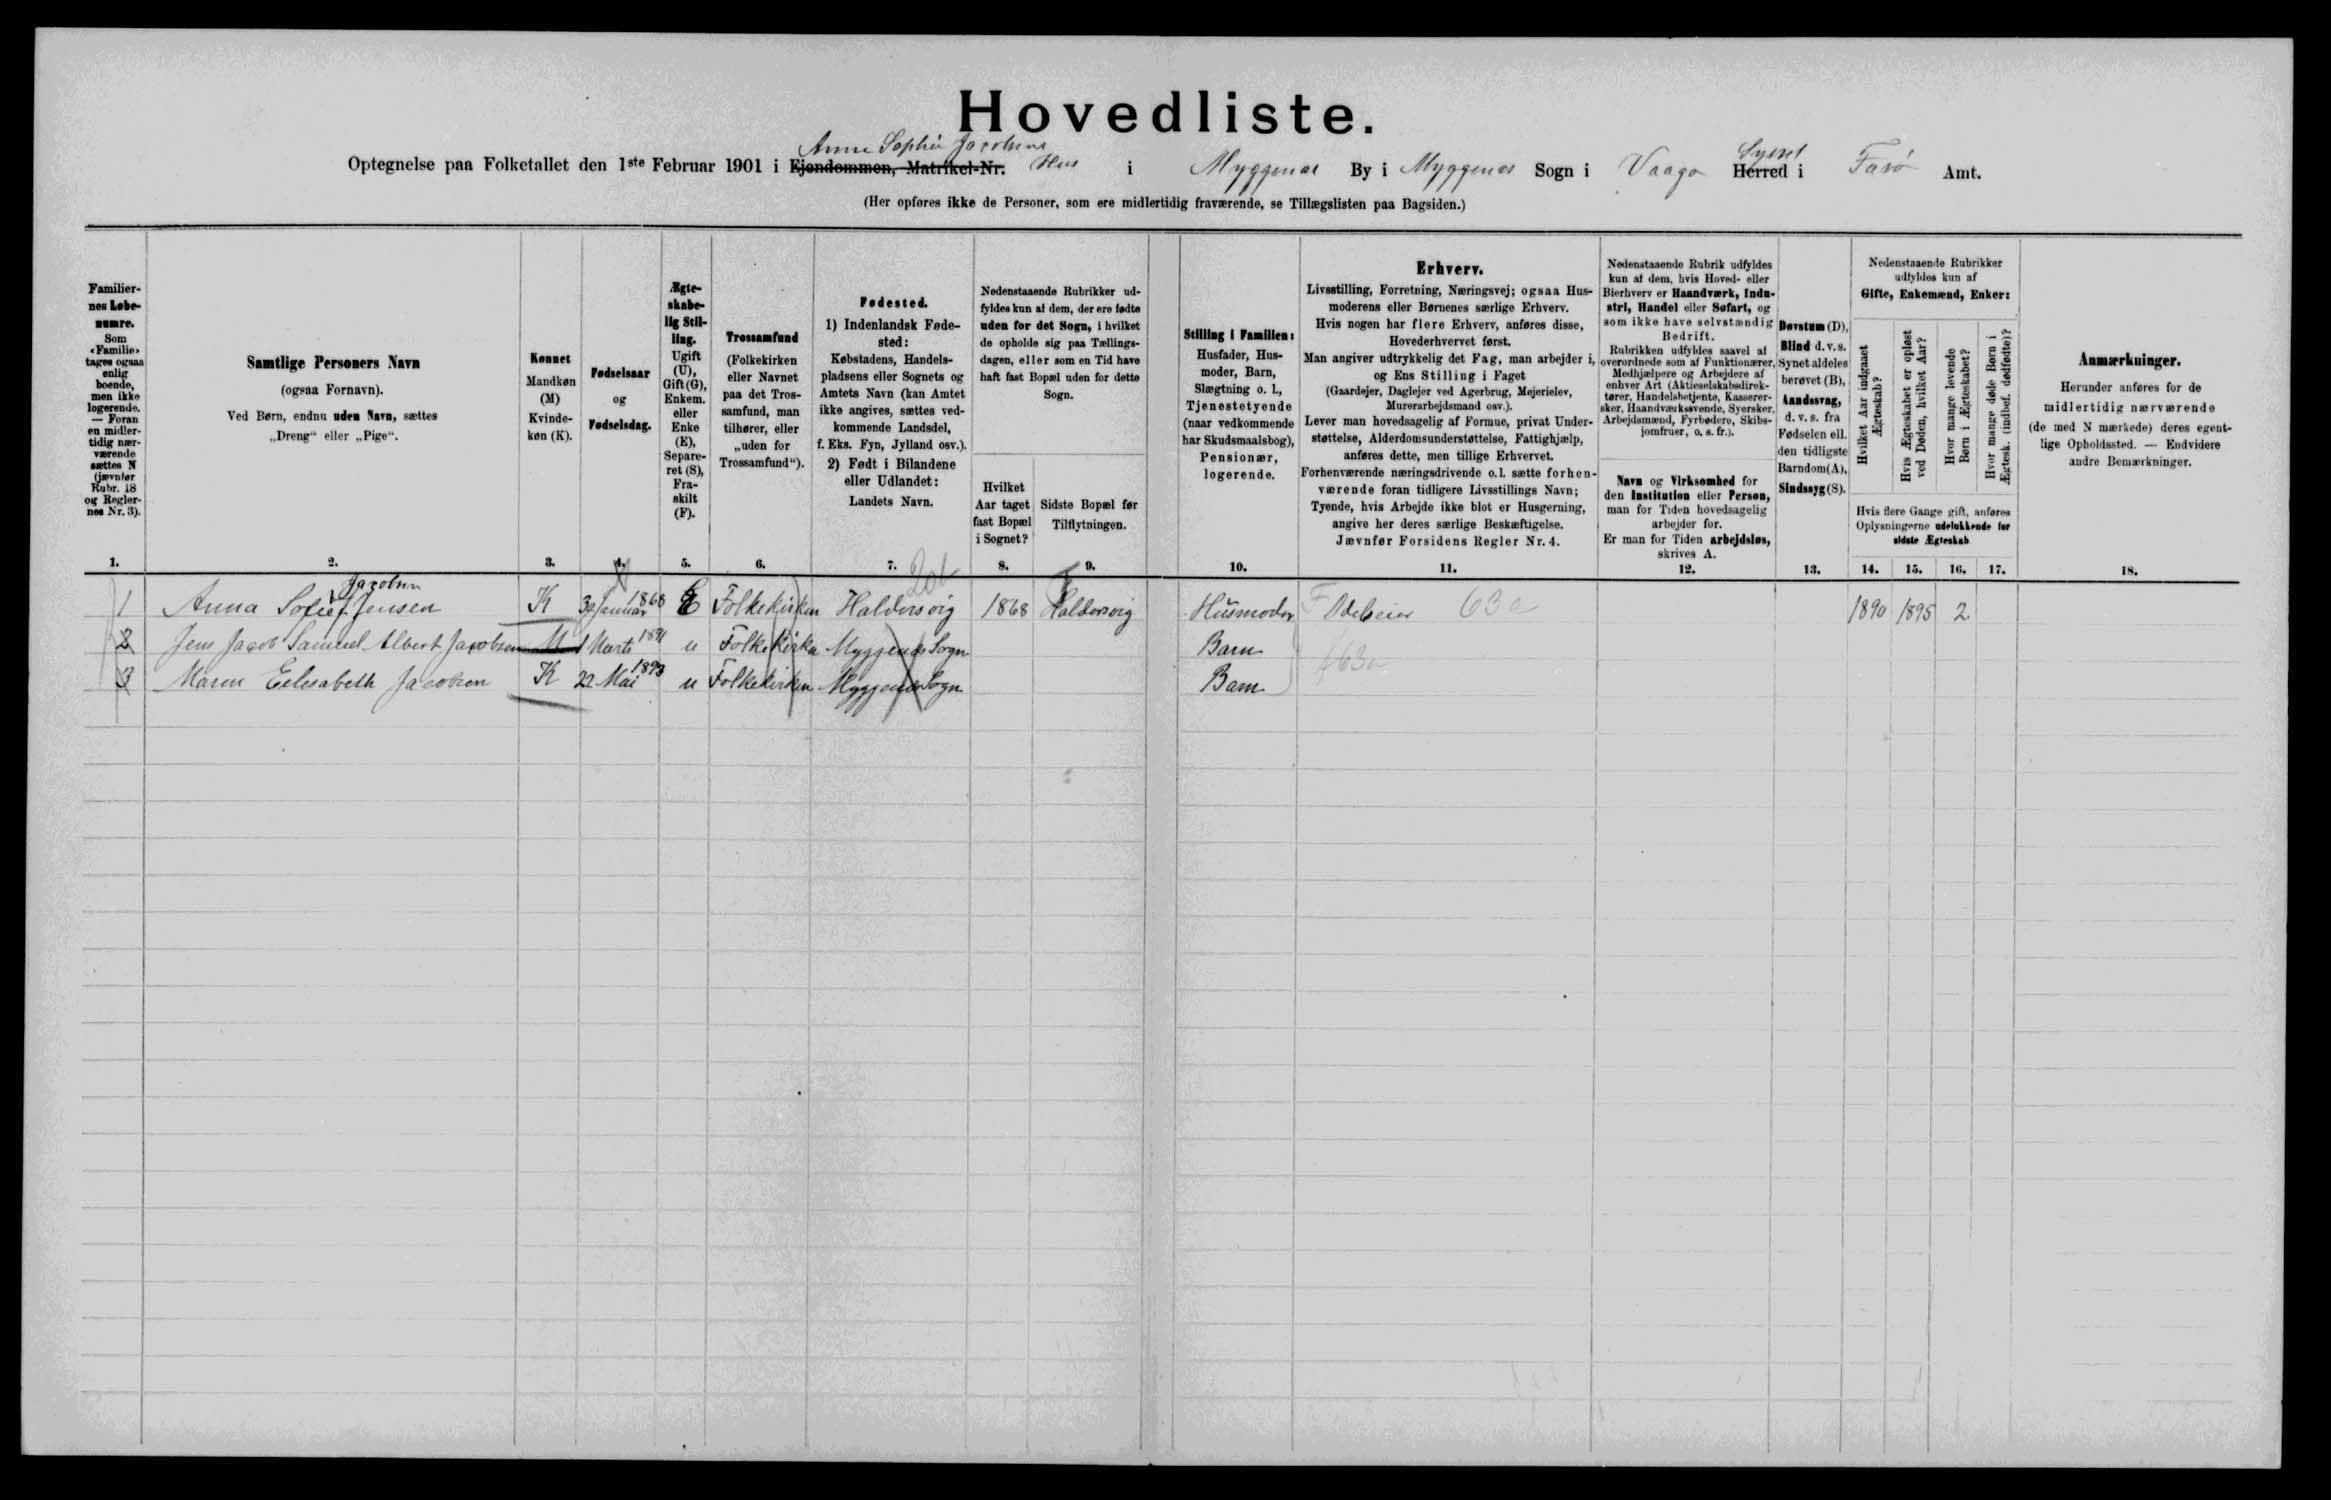 Hovedliste.
Anne Sophie Jacobsens
Optegnelse paa Folketallet den 1ste Februar 1901 i Ejendommen, Matrikel-Nr. Hus i Myggenæs By i Myggenæs Sogn i Vaagø Herred i Færø Amt.
Syssel
(Her opføres ikke de Personer, som ere midlertidig fraværende, se Tillægslisten paa Bagsiden.)
Familiernes Løbenumre.
Som «Familie» tages ogsaa enlig boende, men ikke logerende. — Foran en midlertidig nærværende sættes N (jævnfør Rubr. 18 og Reglernes Nr. 3).
1.
Samtlige Personers Navn
(ogsaa Fornavn).
Ved Børn, endnu uden Navn, sættes
„Dreng“ eller „Pige“.
2.
Kønnet
Mandkøn
(M)
Kvinde-
køn (K).
3.
Fødselsaar
og
Fødselsdag.
4.
Ægte-
skabe-
lig Stil-
ling.
Ugift
(U),
Gift (G),
Enkem.
eller
Enke
(E),
Separe-
ret (S),
Fra-
skilt
(F).
5.
Trossamfund
(Folkekirken
eller Navnet
paa det Tros-
samfund, man
tilhører, eller
„uden for
Trossamfund“).
6.
Fødested.
1) Indenlandsk Føde-
sted:
Købstadens, Handels-
pladsens eller Sognets og
Amtets Navn (kan Amtet
ikke angives, sættes ved-
kommende Landsdel,
f. Eks. Fyn, Jylland osv.).
2) Født i Bilandene
eller Udlandet:
Landets Navn.
7.
Nedenstaaende Rubrikker ud-
fyldes kun af dem, der ere fødte
uden for det Sogn, i hvilket
de opholde sig paa Tællings-
dagen, eller som en Tid have
haft fast Bopæl uden for dette
Sogn.
Hvilket
Aar taget
fast Bopæl
i Sognet?
8.
Sidste Bopæl før
Tilflytningen.
9.
Stilling i Familien:
Husfader, Hus-
moder, Barn,
Slægtning o. l.,
Tjenestetyende
(naar vedkommende
har Skudsmaalsbog),
Pensionær,
logerende.
10.
Erhverv.
Livsstilling, Forretning, Næringsvej; ogsaa Hus-
moderens eller Børnenes særlige Erhverv.
Hvis nogen har flere Erhverv, anføres disse,
Hovederhvervet først.
Man angiver udtrykkelig det Fag, man arbejder i,
og Ens Stilling i Faget
(Gaardejer, Daglejer ved Agerbrug, Mejerielev,
Murerarbejdsmand osv.).
Lever man hovedsagelig af Formue, privat Under-
støttelse, Alderdomsunderstøttelse, Fattighjælp,
anføres dette, men tillige Erhvervet.
Forhenværende næringsdrivende o.l. sætte forhen-
værende foran tidligere Livsstillings Navn;
Tyende, hvis Arbejde ikke blot er Husgerning,
angive her deres særlige Beskæftigelse.
Jævnfør Forsidens Regler Nr. 4.
11.
Nedenstaaende Rubrik udfyldes
kun af dem, hvis Hoved- eller
Bierhverv er Haandværk, Indu-
stri, Handel eller Søfart, og
som ikke have selvstændig
Bedrift.
Rubrikken udfyldes saavel af
overordnede som af Funktionærer,
Medhjælpere og Arbejdere af
enhver Art (Aktieselskabsdirek-
tører, Handelsbetjente, Kasserer-
sker, Haandværkssvende, Syersker,
Arbejdsmænd, Fyrbødere, Skibs-
jomfruer, o. s. fr.).
Navn og Virksomhed for
den Institution eller Person,
man for Tiden hovedsagelig
arbejder for.
Er man for Tiden arbejdsløs,
skrives A.
12.
Døvstum (D),
Blind d. v. s.
Synet aldeles
berøvet (B),
Aandssvag,
d. v. s. fra
Fødselen ell.
den tidligste
Barndom (A),
Sindssyg (S).
13.
Nedenstaaende Rubrikker
udfyldes kun af
Gifte, Enkemænd, Enker:
Hvilket Aar indgaaet
Ægteskab?
Hvis Ægteskabet er opløst
ved Døden, hvilket Aar?
Hvor mange levende
Børn i Ægteskabet?
Hvor mange døde Børn i
Ægtesk. (indbef. dødfødte)?
Hvis flere Gange gift, anføres
Oplysningerne udelukkende for
sidste Ægteskab
14. 15. 16. 17.
Anmærkninger.
Herunder anføres for de
midlertidig nærværende
(de med N mærkede) deres egent-
lige Opholdssted. — Endvidere
andre Bemærkninger.
18.
Jacobsen
1 Anna Sofie f. Jensen K 30 Januar 1868 E Folkekirken Haldersvig 1868 Haldersvig Husmoder F Odelseier 63a 1890 1895 2
2 Jens Jacob Samuel Albert Jacobsen M 1 Marts 1891 u Folkekirken Myggenæs Sogn Barn
3 Maren Elesabeth Jacobsen K 22 Mai 1893 u Folkekirken Myggenæs Sogn Barn
f 63a